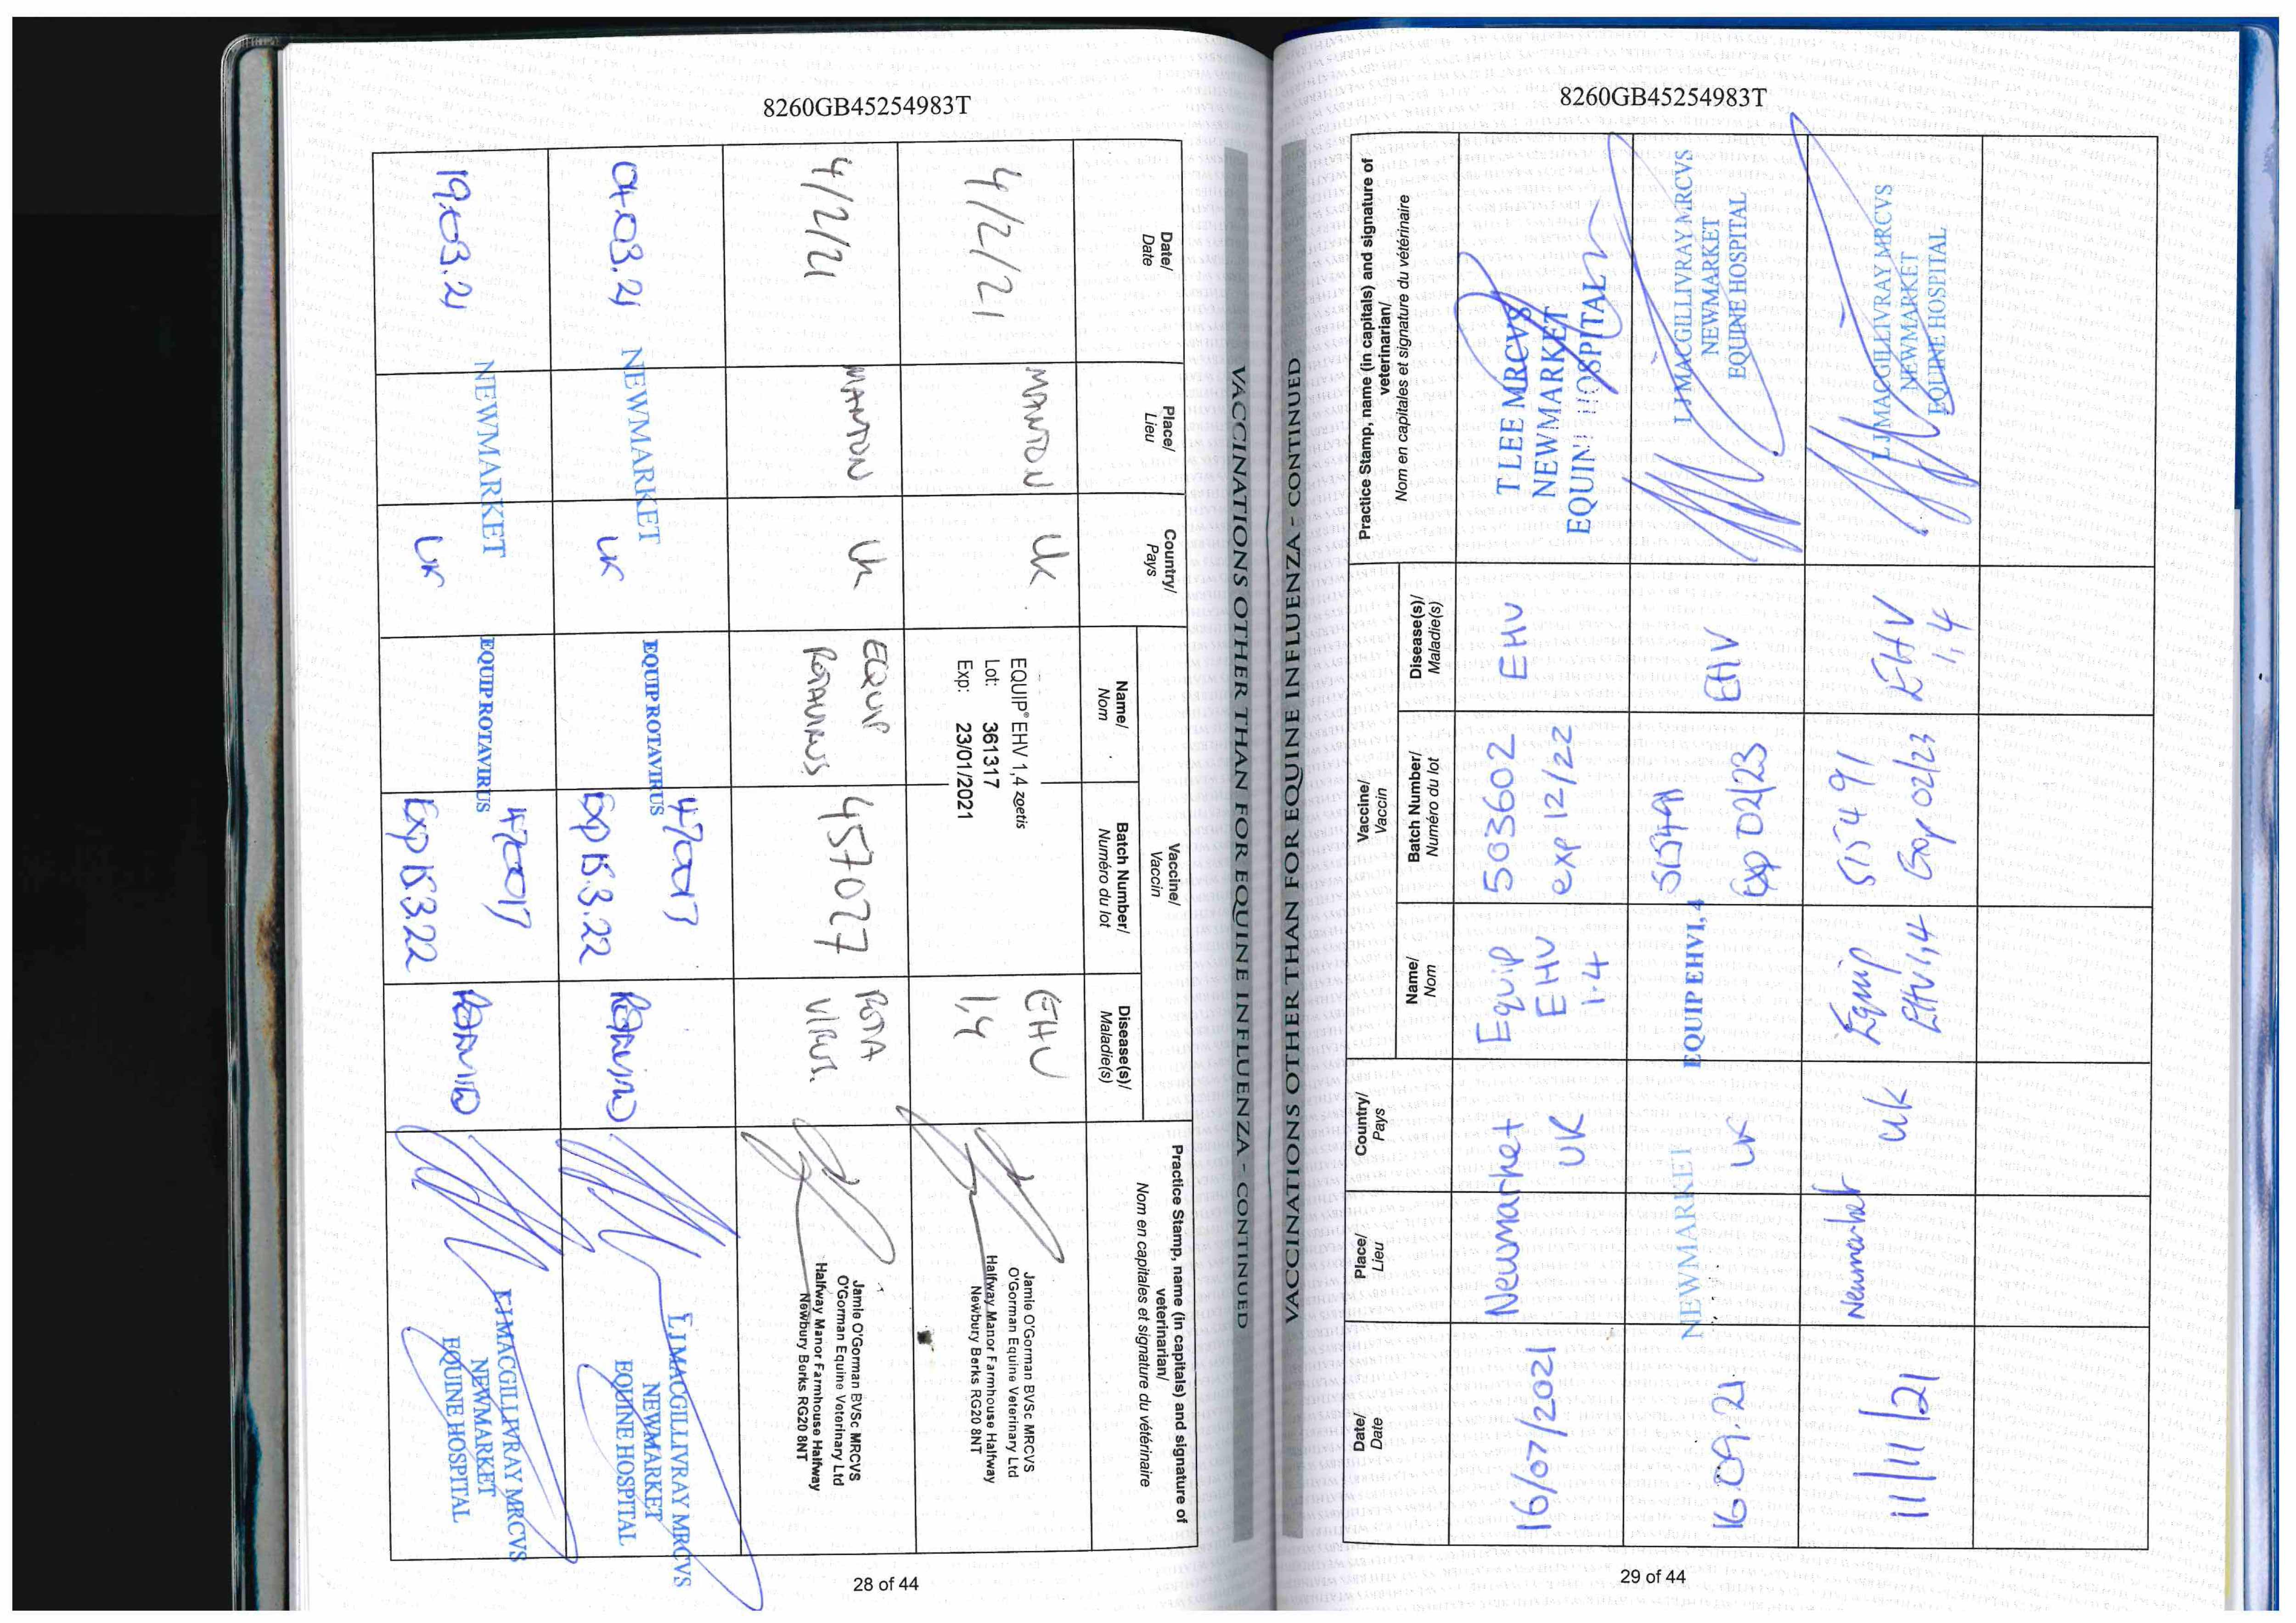 8260GB45254983T
VACCINATIONS OTHER THAN FOR EQUINE INFLUENZA - CONTINUED
Date/
Date
Place/
Lieu
Country/
Pays
Vaccine/
Vaccin
Name/
Nom
Batch Number/
Numéro du lot
Disease(s)/
Maladie(s)
Practice Stamp, name (in capitals) and signature of
veterinarian/
Nom en capitales et signature du vétérinaire
4/2/21
MANTON
UK
EQUIP® EHV 1,4 zoetis
Lot: 361317
Exp: 23/01/2021
EHV
1,4
Jamie O'Gorman BVSc MRCVS
O'Gorman Equine Veterinary Ltd
Halfway Manor Farmhouse Halfway
Newbury Berks RG20 8NT
4/2/21
MANTON
UK
EQUIP
ROTAVIRUS
457027
ROTA
VIRUS.
Jamie O'Gorman BVSc MRCVS
O'Gorman Equine Veterinary Ltd
Halfway Manor Farmhouse Halfway
Newbury Berks RG20 8NT
04.03.21
NEWMARKET
UK
EQUIP ROTAVIRUS
470017
Exp 15.3.22
LJ MACGILLIVRAY MRCVS
NEWMARKET
EQUINE HOSPITAL
19.03.21
NEWMARKET
UK
EQUIP ROTAVIRUS
470017
Exp 15.3.22
LJ MACGILLIVRAY MRCVS
NEWMARKET
EQUINE HOSPITAL
28 of 44
8260GB45254983T
VACCINATIONS OTHER THAN FOR EQUINE INFLUENZA - CONTINUED
Date/
Date
Place/
Lieu
Country/
Pays
Vaccine/
Vaccin
Name/
Nom
Batch Number/
Numéro du lot
Disease(s)/
Maladie(s)
Practice Stamp, name (in capitals) and signature of
veterinarian/
Nom en capitales et signature du vétérinaire
16/07/2021
Newmarket
UK
Equip
EHV
1.4
503602
exp 12/22
EHV
T LEE MRCVS
NEWMARKET
EQUINE HOSPITAL
16.09.21
NEWMARKET
UK
EQUIP EHV1,4
515491
Exp 02/23
EHV
LJ MACGILLIVRAY MRCVS
NEWMARKET
EQUINE HOSPITAL
11/11/21
Newmarket
UK
Equip
EHV1,4
515491
Exp 02/23
EHV
1,4
LJ MACGILLIVRAY MRCVS
NEWMARKET
EQUINE HOSPITAL
29 of 44